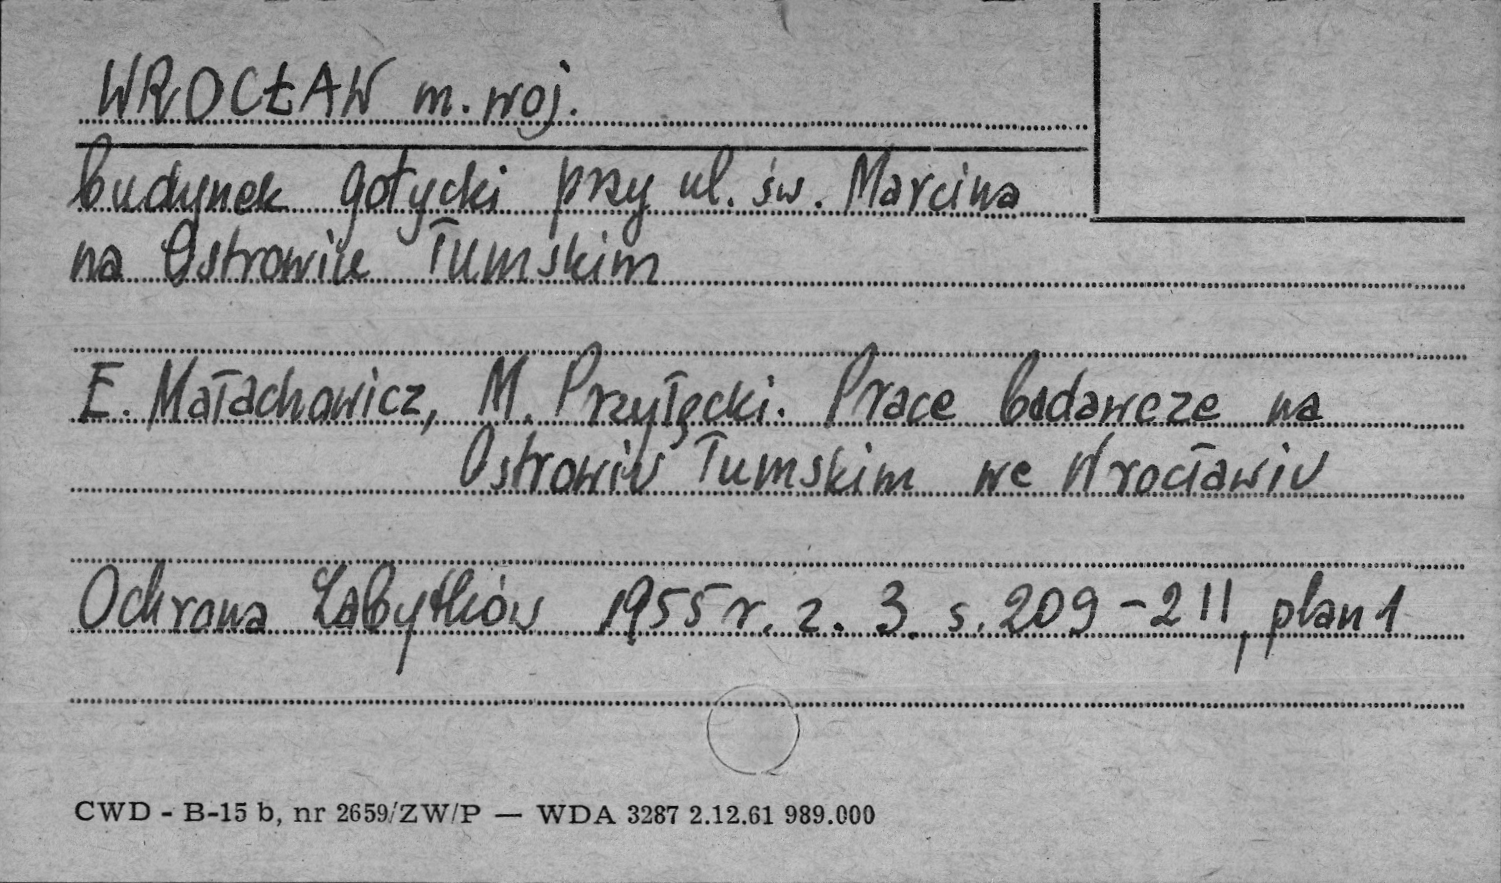 WROCŁAW m. woj.
budynek gotycki przy ul. św. Marcina
na Ostrowiu Tumskim
E. Małachowicz, M. Przyłęcki. Prace badawcze na
Ostrowiu Tumskim we Wrocławiu
Ochrona Zabytków 1955 r. z. 3. s. 209-211, plan 1
CWD - B-15 b, nr 2659/ZW/P — WDA 3287 2.12.61 989.000